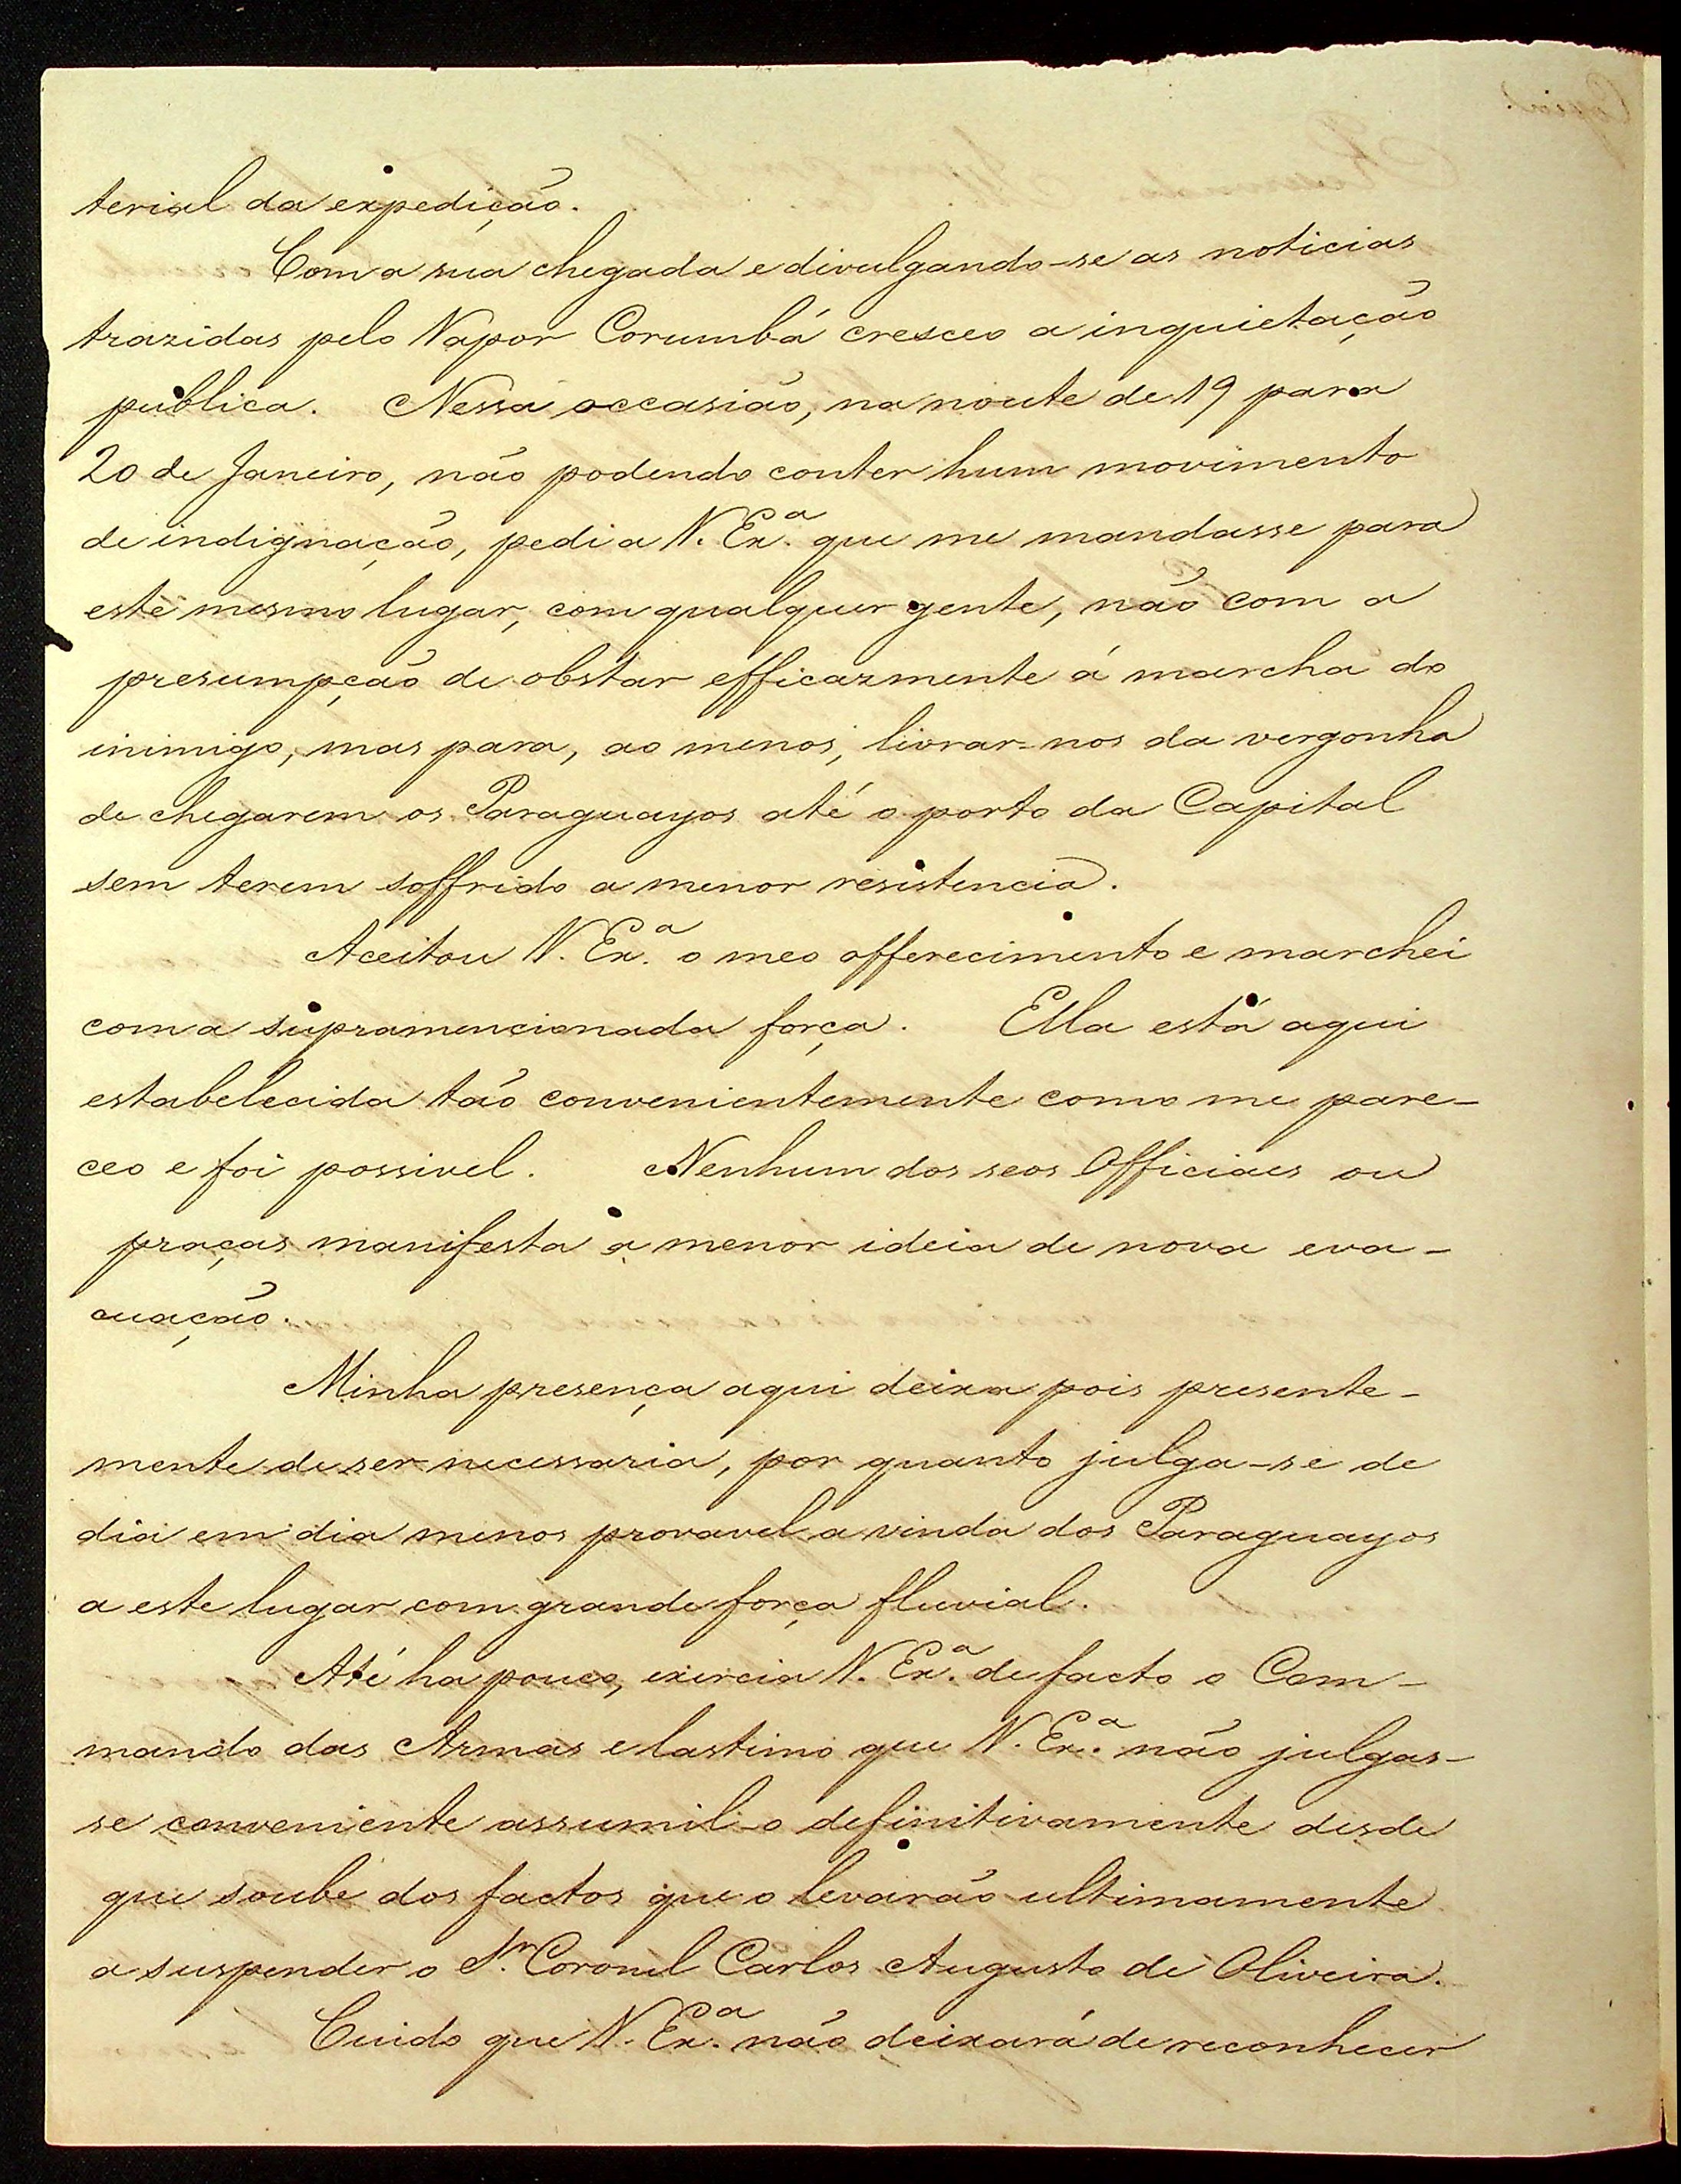 terial da expedição.
Com a sua chegada e divulgando-se as noticias
trazidas pelo Vapor Corumbá cresceo a inquietação
publica. Nessa occasião, na noute de 19 para
20 de Janeiro, não podendo conter hum movimento
de indignação, pedi a V. Ex.ª que me mandasse para
este mesmo lugar, com qualquer gente, não com a
presumpção de obstar efficazmente á marcha do
inimigo, mas para, ao menos, livrar-nos da vergonha
de chegarem os Paraguayos até o porto da Capital
sem terem soffrido a menor resistencia.
Aceitou V. Ex.ª o meo offerecimento e marchei
com a supramencionada força. Ella está aqui
estabelecida tão convenientemente como me pare-
ceo e foi possivel. Nenhum dos seos Officiaes ou
praças manifesta a menor ideia de nova eva-
cuação.
Minha presença aqui deixa pois presente-
mente de ser necessaria, por quanto julga-se de
dia em dia menos provavel a vinda dos Paraguayos
a este lugar com grande força fluvial.
Até ha pouco, exercia V. Ex.ª de facto o Com-
mando das Armas e lastimo que V. Ex.ª não julgas-
se conveniente assumil-o definitivamente desde
que soube dos factos que o levarão ultimamente
a suspender o Sr. Coronel Carlos Augusto de Oliveira.
Cuido que V. Ex.ª não deixará de reconhecer